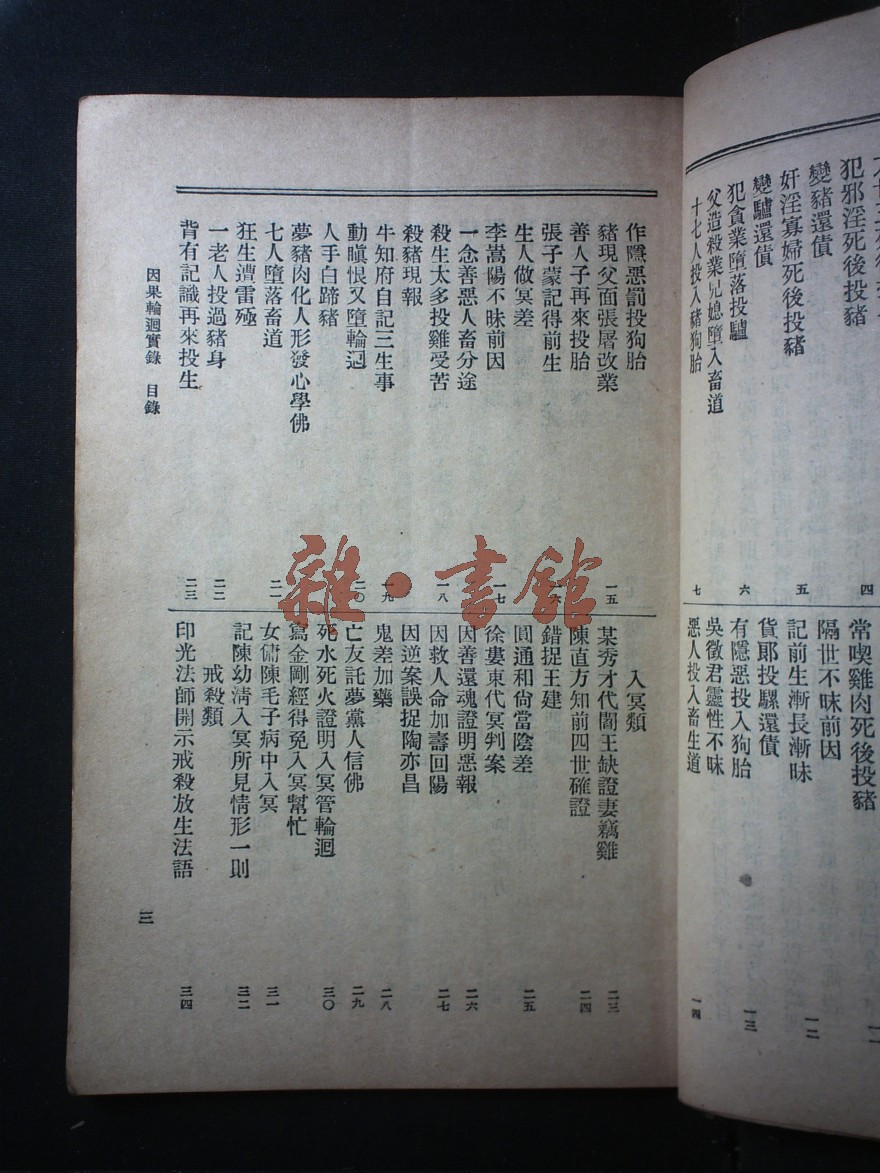 犯邪淫死後投豬
四
變豬還債
奸淫寡婦死後投豬
五
變驢還債
犯貪業墮落投驢
六
父造殺業兄媳墮入畜道
十七人投入豬狗胎
七
常喫雞肉死後投豬
隔世不昧前因
記前生漸長漸昧
一二
貨耶投騾還債
有隱惡投入狗胎
一三
吳徵君靈性不昧
惡人投入畜生道
一四
作隱惡罰投狗胎
豬現父面張屠改業
一五
善人子再來投胎
張子蒙記得前生
生人做冥差
李嵩陽不昧前因
一七
一念善惡人畜分途
殺生太多投雞受苦
一八
殺豬現報
牛知府自記三生事
一九
動瞋恨又墮輪迴
二〇
人手白蹄豬
夢豬肉化人形發心學佛
七人墮落畜道
二一
狂生遭雷殛
一老人投過豬身
二二
背有記識再來投生
二三
入冥類
某秀才代閻王缺證妻竊雞
二三
陳直方知前四世確證
二四
錯捉王建
圓通和尙當陰差
二五
徐婁東代冥判案
因善還魂證明惡報
二六
因救人命加壽回陽
二七
因逆案誤捉陶亦昌
鬼差加藥
二八
亡友託夢黨人信佛
二九
死水死火證明入冥管輪迴
三〇
寫金剛經得免入冥幫忙
女傭陳毛子病中入冥
三一
記陳幼淸入冥所見情形一則
三二
戒殺類
印光法師開示戒殺放生法語
三四
因果輪迴實錄 目錄
三
雜·書館